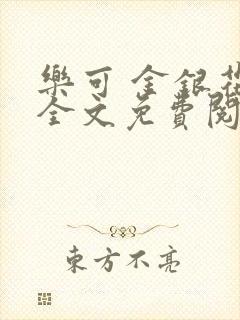 樂可 金銀花
全文免費閱
東方不亮